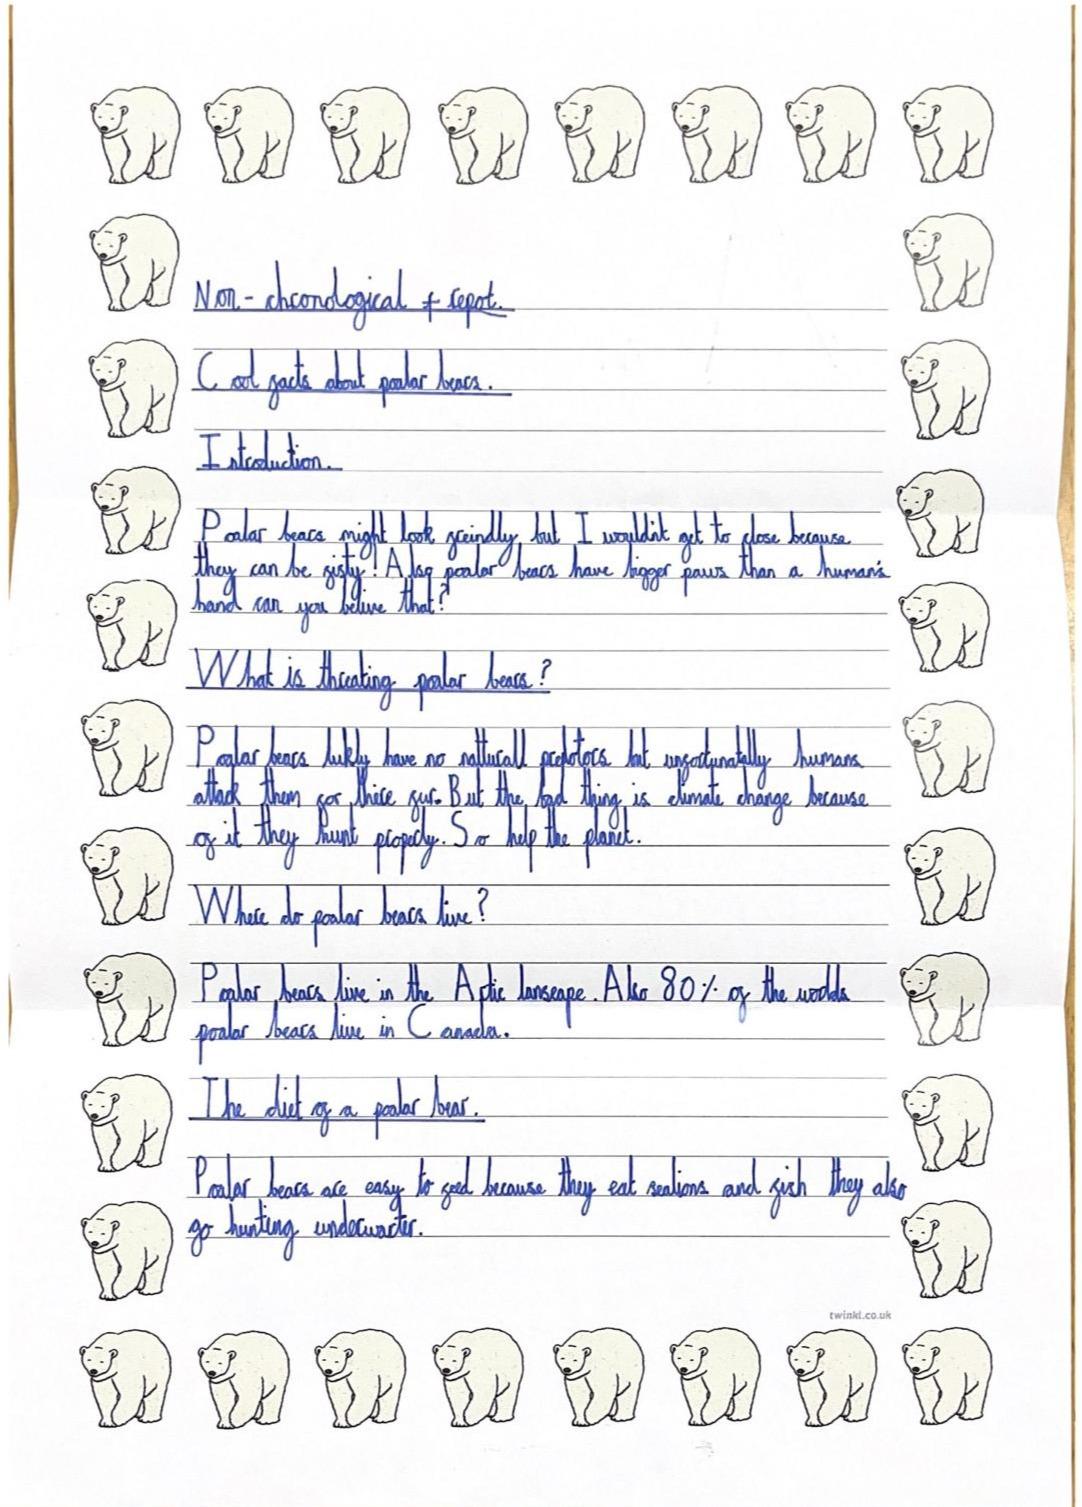 Non-chronological + repot.
Cool facts about poalar bears.
Introduction.
Poalar bears might look freindly but I wouldn't get to close because
they can be fisty! Also poalar bears have bigger paws than a human's
hand can you belive that?
What is threating poalar bears?
Poalar bears lukly have no natturall predotors but unfortunatally humans
attack them for there fur. But the bad thing is climate change because
of it they hunt properly. So help the planet.
Where do poalar bears live?
Poalar bears live in the Artic lanscape. Also 80% of the worlds
poalar bears live in Canada.
The diet of a poalar bear.
Poalar bears are easy to feed because they eat sealions and fish they also
go hunting underwarter.
twinkl.co.uk